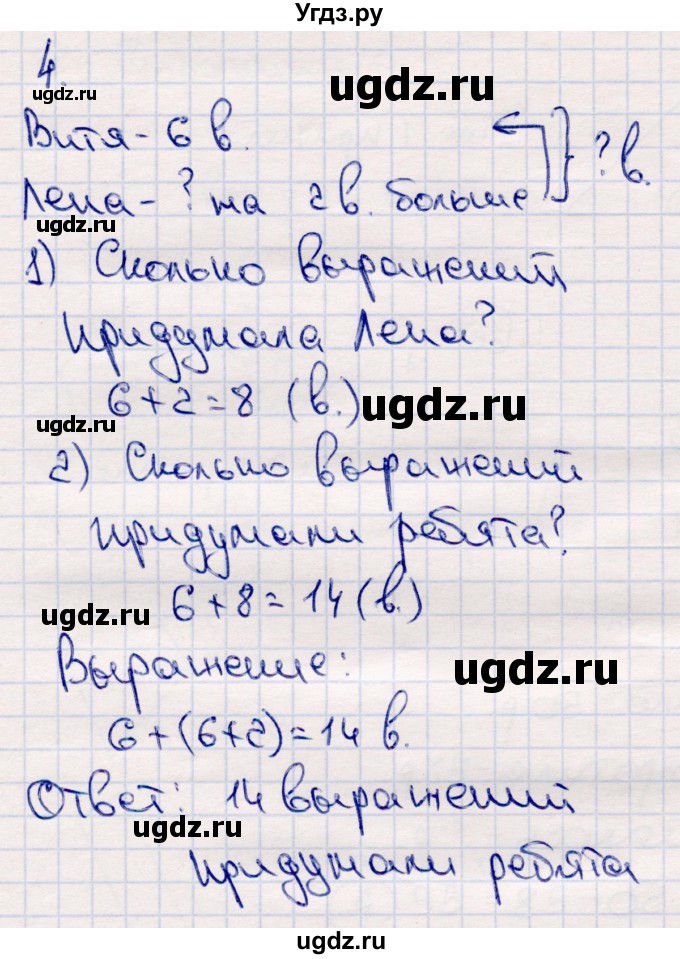 Угдз.ру
4.
ugdz.ru
ugdz.ru
Витя - 6 в.
Лена - ? на 2 в. больше } ? в.
ugdz.ru
1) Сколько выражений
придумала Лена?
6+2=8 (в.)
ugdz.ru
ugdz.ru
2) Сколько выражений
придумали ребята?
6+8=14 (в.)
ugdz.ru
Выражение:
ugdz.ru
6+(6+2)=14 в.
Ответ: 14 выражений
ugdz.ru
придумали ребята
ugdz.ru